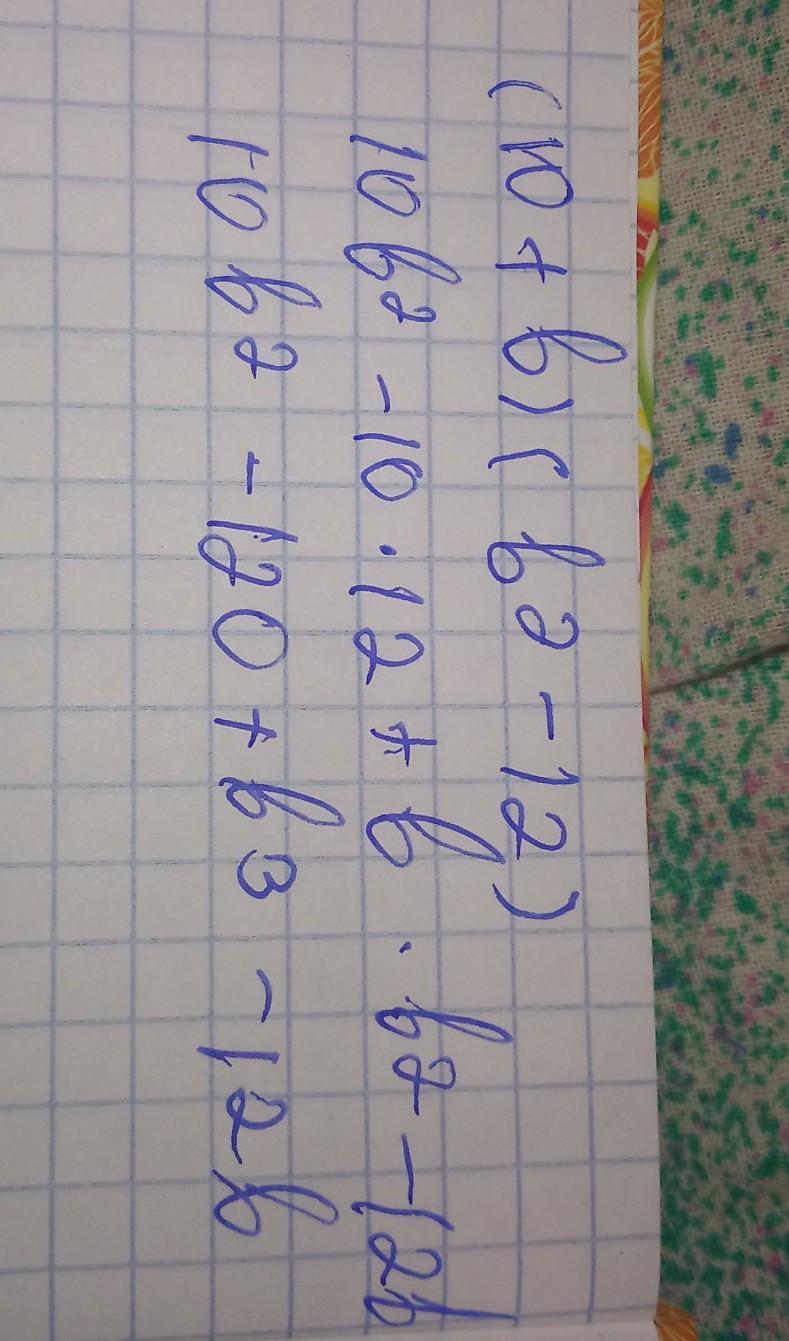 (10 + b)(b2 - 12)
10b2 - 10 · 12 + b · b2 - 12b
10b2 - 120 + b3 - 12b